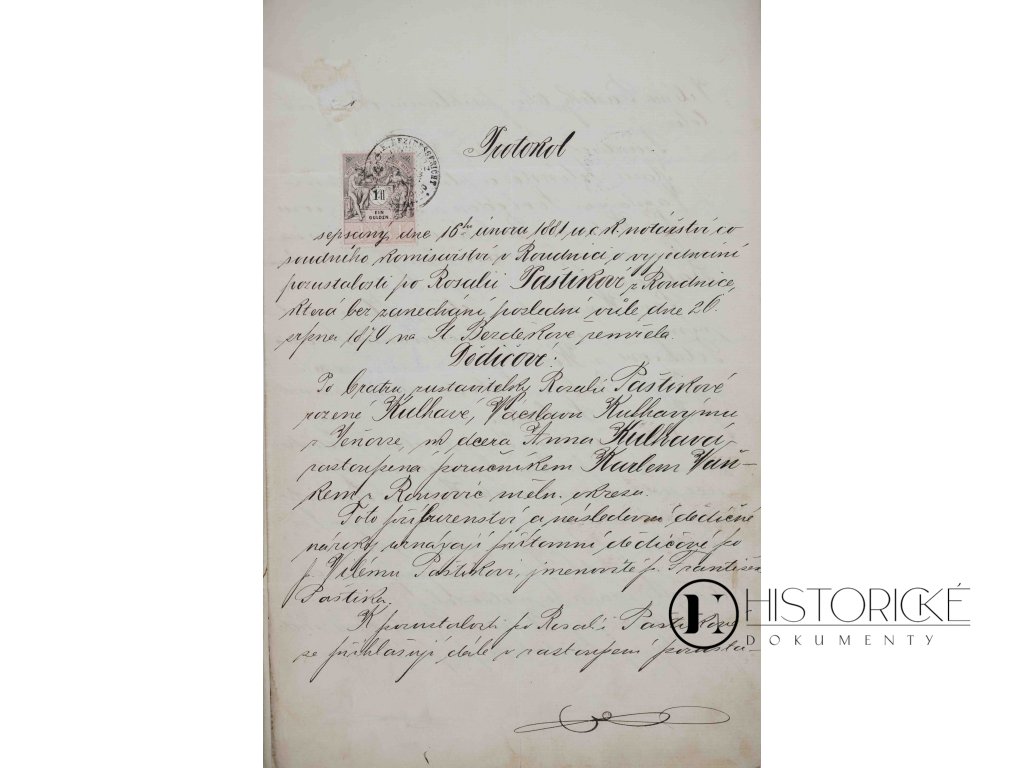 Protokol
K. K. BEZIRKSGERICHT
1 fl
EIN
GULDEN
sepsaný dne 16ho února 1881 u c. k. notářství co
soudního komisařství v Roudnici o vyjednání
pozustalosti po Rosalii Paštikové z Roudnice,
která bez zanechání poslední vůle dne 26.
srpna 1879 na St. Bezděkově zemřela.
Dědicové:
Po bratru zustavitelky Rosalie Paštikové
rozené Kulhavé, Václavu Kulhavýmu
z dcera Anna Kulhavá,
zastoupena poručníkem Karlem Vaň-
kem z Rousovic měln. okresu.
Toto příbuzenství a následovní dědičné
nároky uznávají přítomní dědicové po
p. Vilému Paštikovi, jmenovitě p. František
Paštika.
K pozustalosti po Rosalii Paštikové
se přihlašují dále v zastoupení pozusta-
HISTORICKÉ
DOKUMENTY